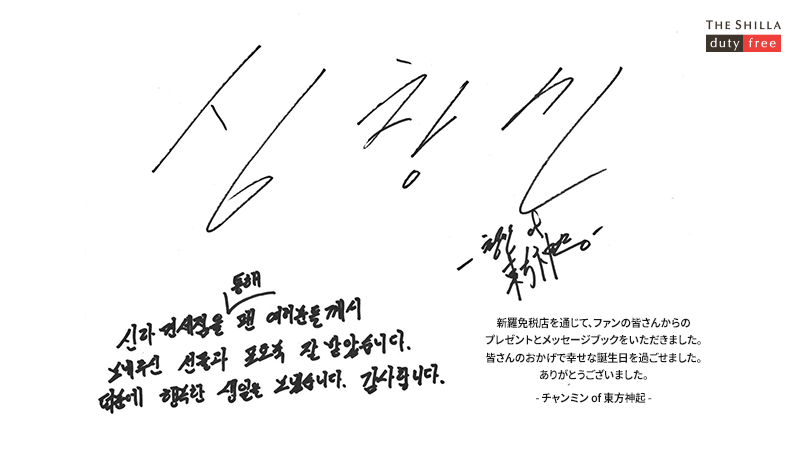 THE SHILLA
duty free
심창민
창민 of
東方神起
통해
신라 면세점을 팬 여러분들께서
보내주신 선물과 포토북 잘 받았습니다.
덕분에 행복한 생일을 보냈습니다. 감사합니다.
新羅免税店を通じて、ファンの皆さんからの
プレゼントとメッセージブックをいただきました。
皆さんのおかげで幸せな誕生日を過ごせました。
ありがとうございました。
- チャンミン of 東方神起 -